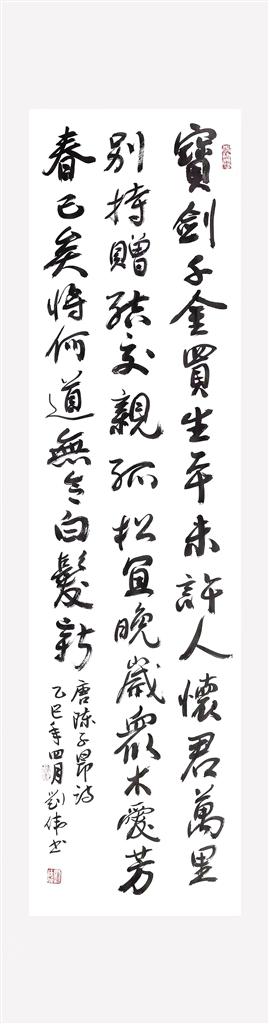 寶劍千金買生平未許人懷君萬里
別持贈結交親孤松宜晚歲眾木愛芳
春已矣將何道無令白髮新
唐陈子昂诗
乙巳年四月劉偉书